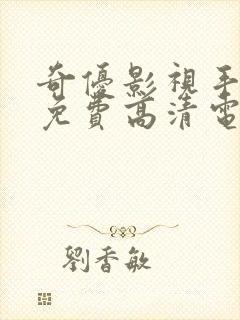 奇優影視手
免費高清電
劉香敏